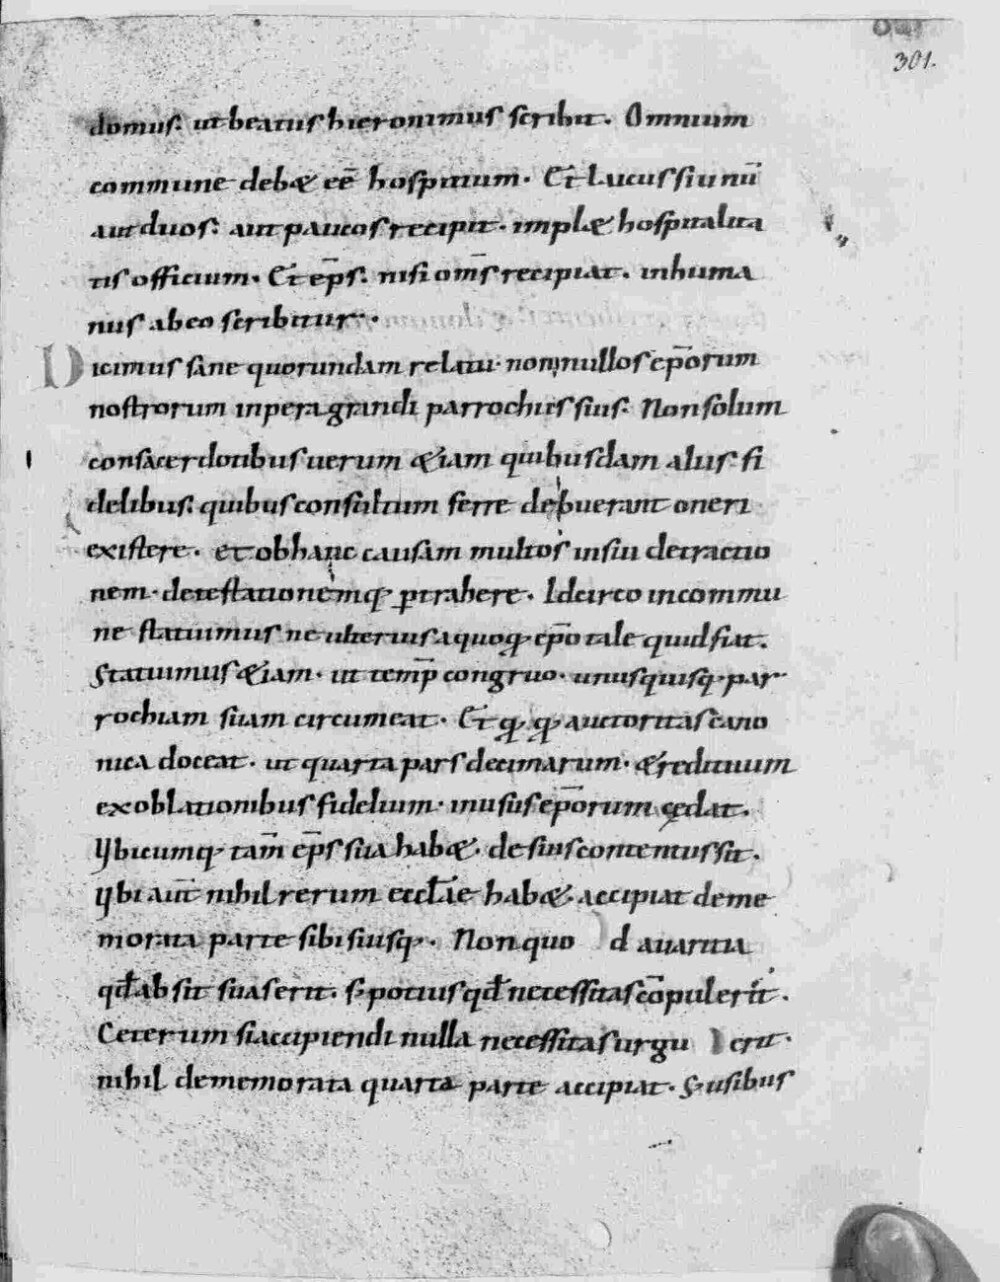 301.
domus. ut beatus hieronimus scribit. Omnium
commune debet eē hospitium. Et Lucus si unū
aut duos: aut paucos recipit. implet hospitalita
tis officium. Et ep̄s. nisi om̄s recipiat. inhuma
nus abeo scribitur.
Dicimus sane quorundam relatu. nonnullos ep̄orum
nostrorum in peragrandi parrochiis suis. Non solum
consacerdotibus uerum etiam quibusdam aliis fi
delibus. quibus consultum ferre debuerant oneri
existere. et ob hanc causam multos in sui detractio
nem. detestationemq; ꝑtrahere. Idcirco in commu
ne statuimus ne ulterius a quoq; ep̄o tale quid fiat.
Statuimus etiam. ut temp̄ congruo. unusquisq; par
rochiam suam circumeat. Et
auctoritas cano
nica doceat. ut quarta pars decimarum. et redituum
ex oblationibus fidelium. in usus ep̄orum cedat.
Ubicumq; tam̄ ep̄s sua habet. de suis contentus sit.
Ubi aut̄ nihil rerum eccl̄ie habet. accipiat de me
morata parte sibi suisq;. Non quo d auaritia
qđ absit suaserit. s; potius qđ necessitas cōpulerit.
Ceterum si accipiendi nulla necessitas urgu erit.
nihil de memorata quarta parte accipiat. S; usibus